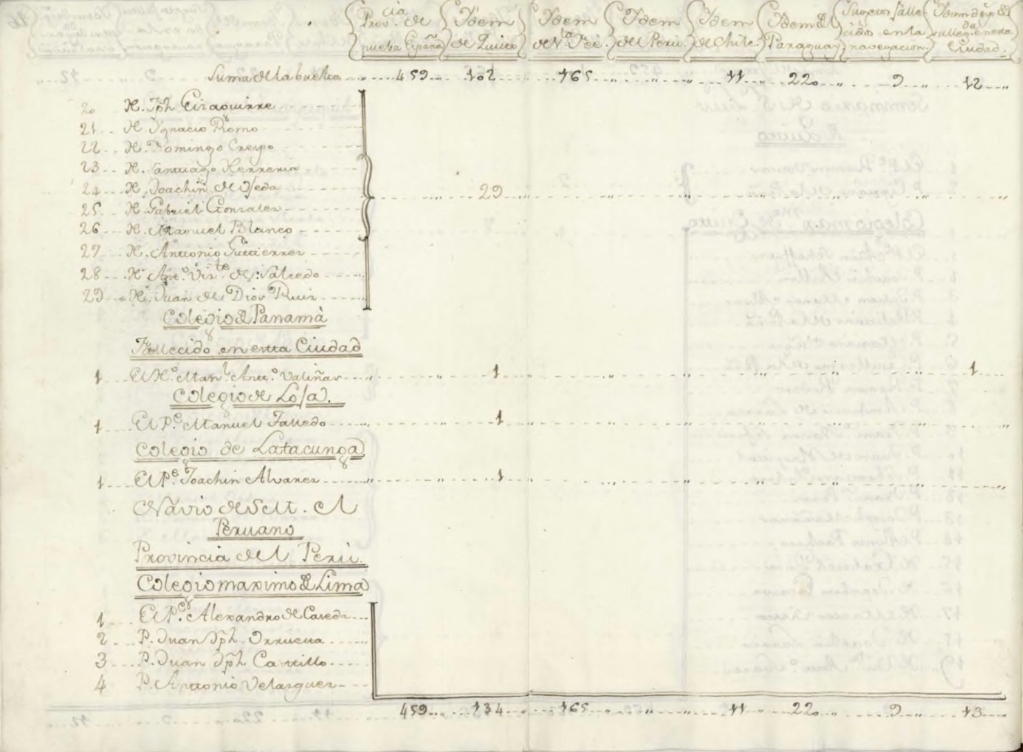 cia
Prov. de nueba España Idem de Quito Idem de Sta Fée Idem del Perù Idem de Chile Idem del Paraguay Sugetos falle cido en la navegacion Idem desp.s de su lleg.da en esta Ciudad.
Suma de la buelta 459 102 165 " " 11 220 9 12
20 H. Jph Eizaguirre
21 H. Ygnacio Romo
22 H. Domingo Crespo
23 H. Santiago Herreria
24 H. Joachin de Ojeda 29
25 H. Gabriel Gonzalez
26 H. Manuel Blanco
27 H. Antonio Gutierrez
28 H. Ant.o Viz.te de Salcedo
29 H. Juan de Dios Ruiz
Colegio de Panamà
Fallecido en esta Ciudad
1 El H.o Man.l Ant.o Valiñas 1 1
Colegio de Loja.
1 El P.e Manuel 1
Colegio de Latacunga
1 El P.e Joachin Alvarez 1
Navio de S. M. El
Peruano
Provincia del Perù.
Colegio maximo de Lima
1 El P.e Alexandro de
2 P. Juan Jph.
3 P. Juan Jph Castillo
4 P. Antonio Velasquez
459 134 165 " " 11 220 9 13